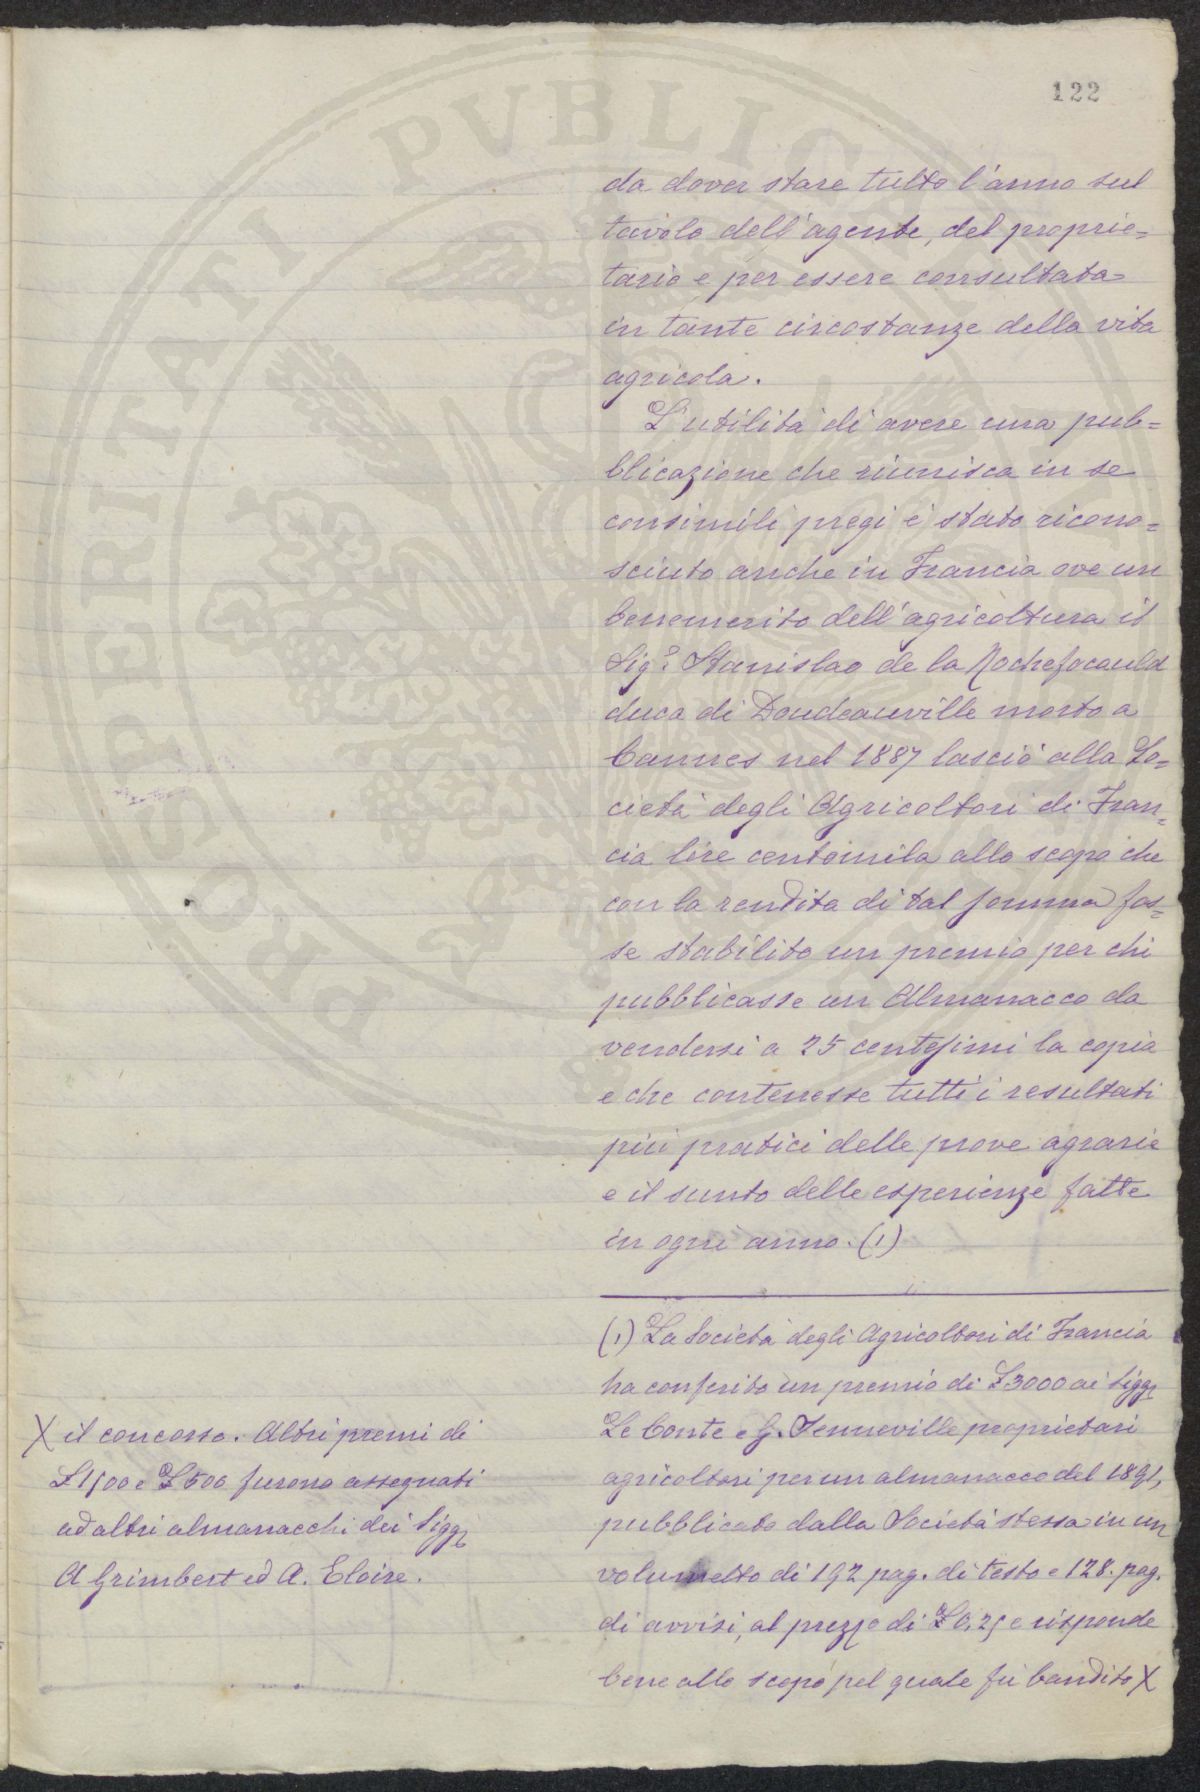 122
da dover stare tutto l'anno sul
tavolo dell'agente, del proprie=
tario e per essere consultata
in tante circostanze della vita
agricola.
L'utilità di avere una pub=
blicazione che riunisca in se
consimili pregi è stato ricono=
sciuto anche in Francia ove un
benemerito dell'agricoltura il
Sigr. Stanislao de la Rochefocauld
duca di Doudeauville morto a
Cannes nel 1887 lasciò alla So=
cietà degli Agricoltori di Fran=
cia lire centomila allo scopo che
con la rendita di tal somma fos=
se stabilito un premio per chi
pubblicasse un Almanacco da
vendersi a 25 centesimi la copia
e che contenesse tutti i resultati
più pratici delle prove agrarie
e il sunto delle esperienze fatte
in ogni anno. (1)
(1) La Società degli Agricoltori di Francia
ha conferito un premio di £3000 ai Sigg.
Le Conte e G. Jenneville proprietari
agricoltori per un almanacco del 1891,
pubblicato dalla Società stessa in un
volumetto di 192 pag. di testo e 128. pag.
di avvisi, al prezzo di £ 0,25 e risponde
bene allo scopo pel quale fù bandito X
X il concorso. Altri premi di
£1500 e £500 furono assegnati
ad altri almanacchi dei Sigg.
A Grimbert ed A. Eloire.
PROSPERITATI PUBLICAE